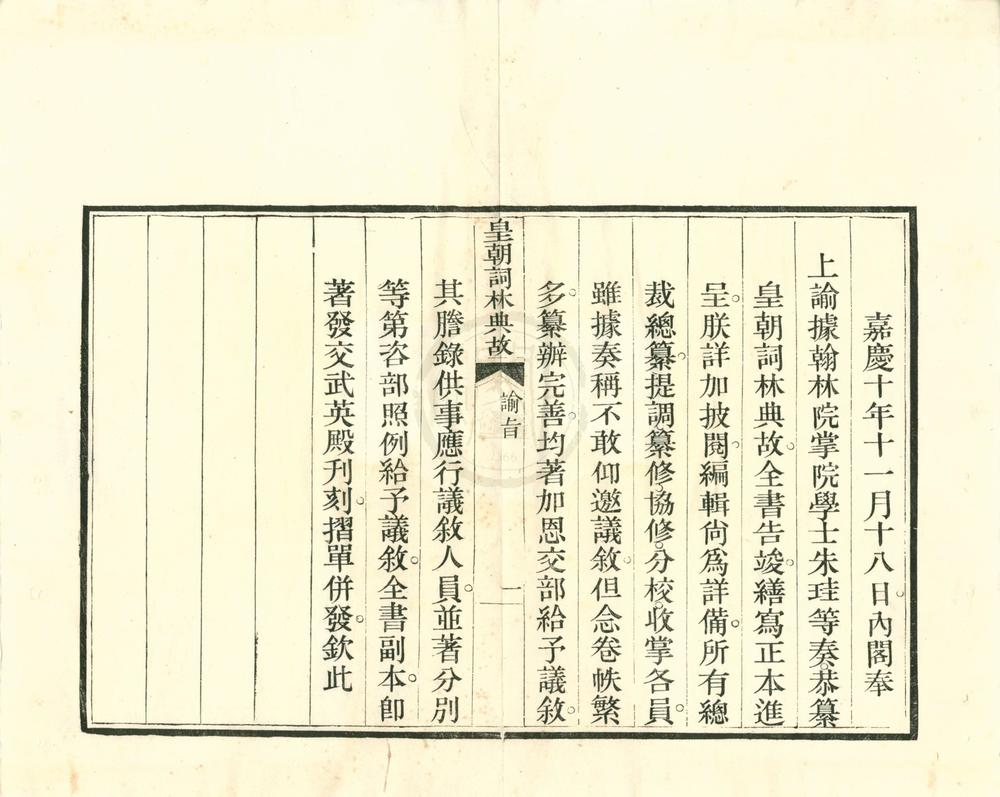 嘉慶十年十一月十八日。內閣奉
上諭據翰林院掌院學士朱珪等奏。恭纂
皇朝詞林典故。全書告竣。繕寫正本進
呈。朕詳加披閱。編輯尙爲詳備。所有總
裁總纂。提調。纂修。協修。分校。收掌各員。
雖據奏稱不敢仰邀議敘。但念卷帙繁
多。纂辦完善。均著加恩交部給予議敘。
皇朝詞林典故
諭旨
一
其謄錄供事應行議敘人員。並著分別
等第咨部照例給予議敘。全書副本。卽
著發交武英殿刋刻。摺單併發。欽此